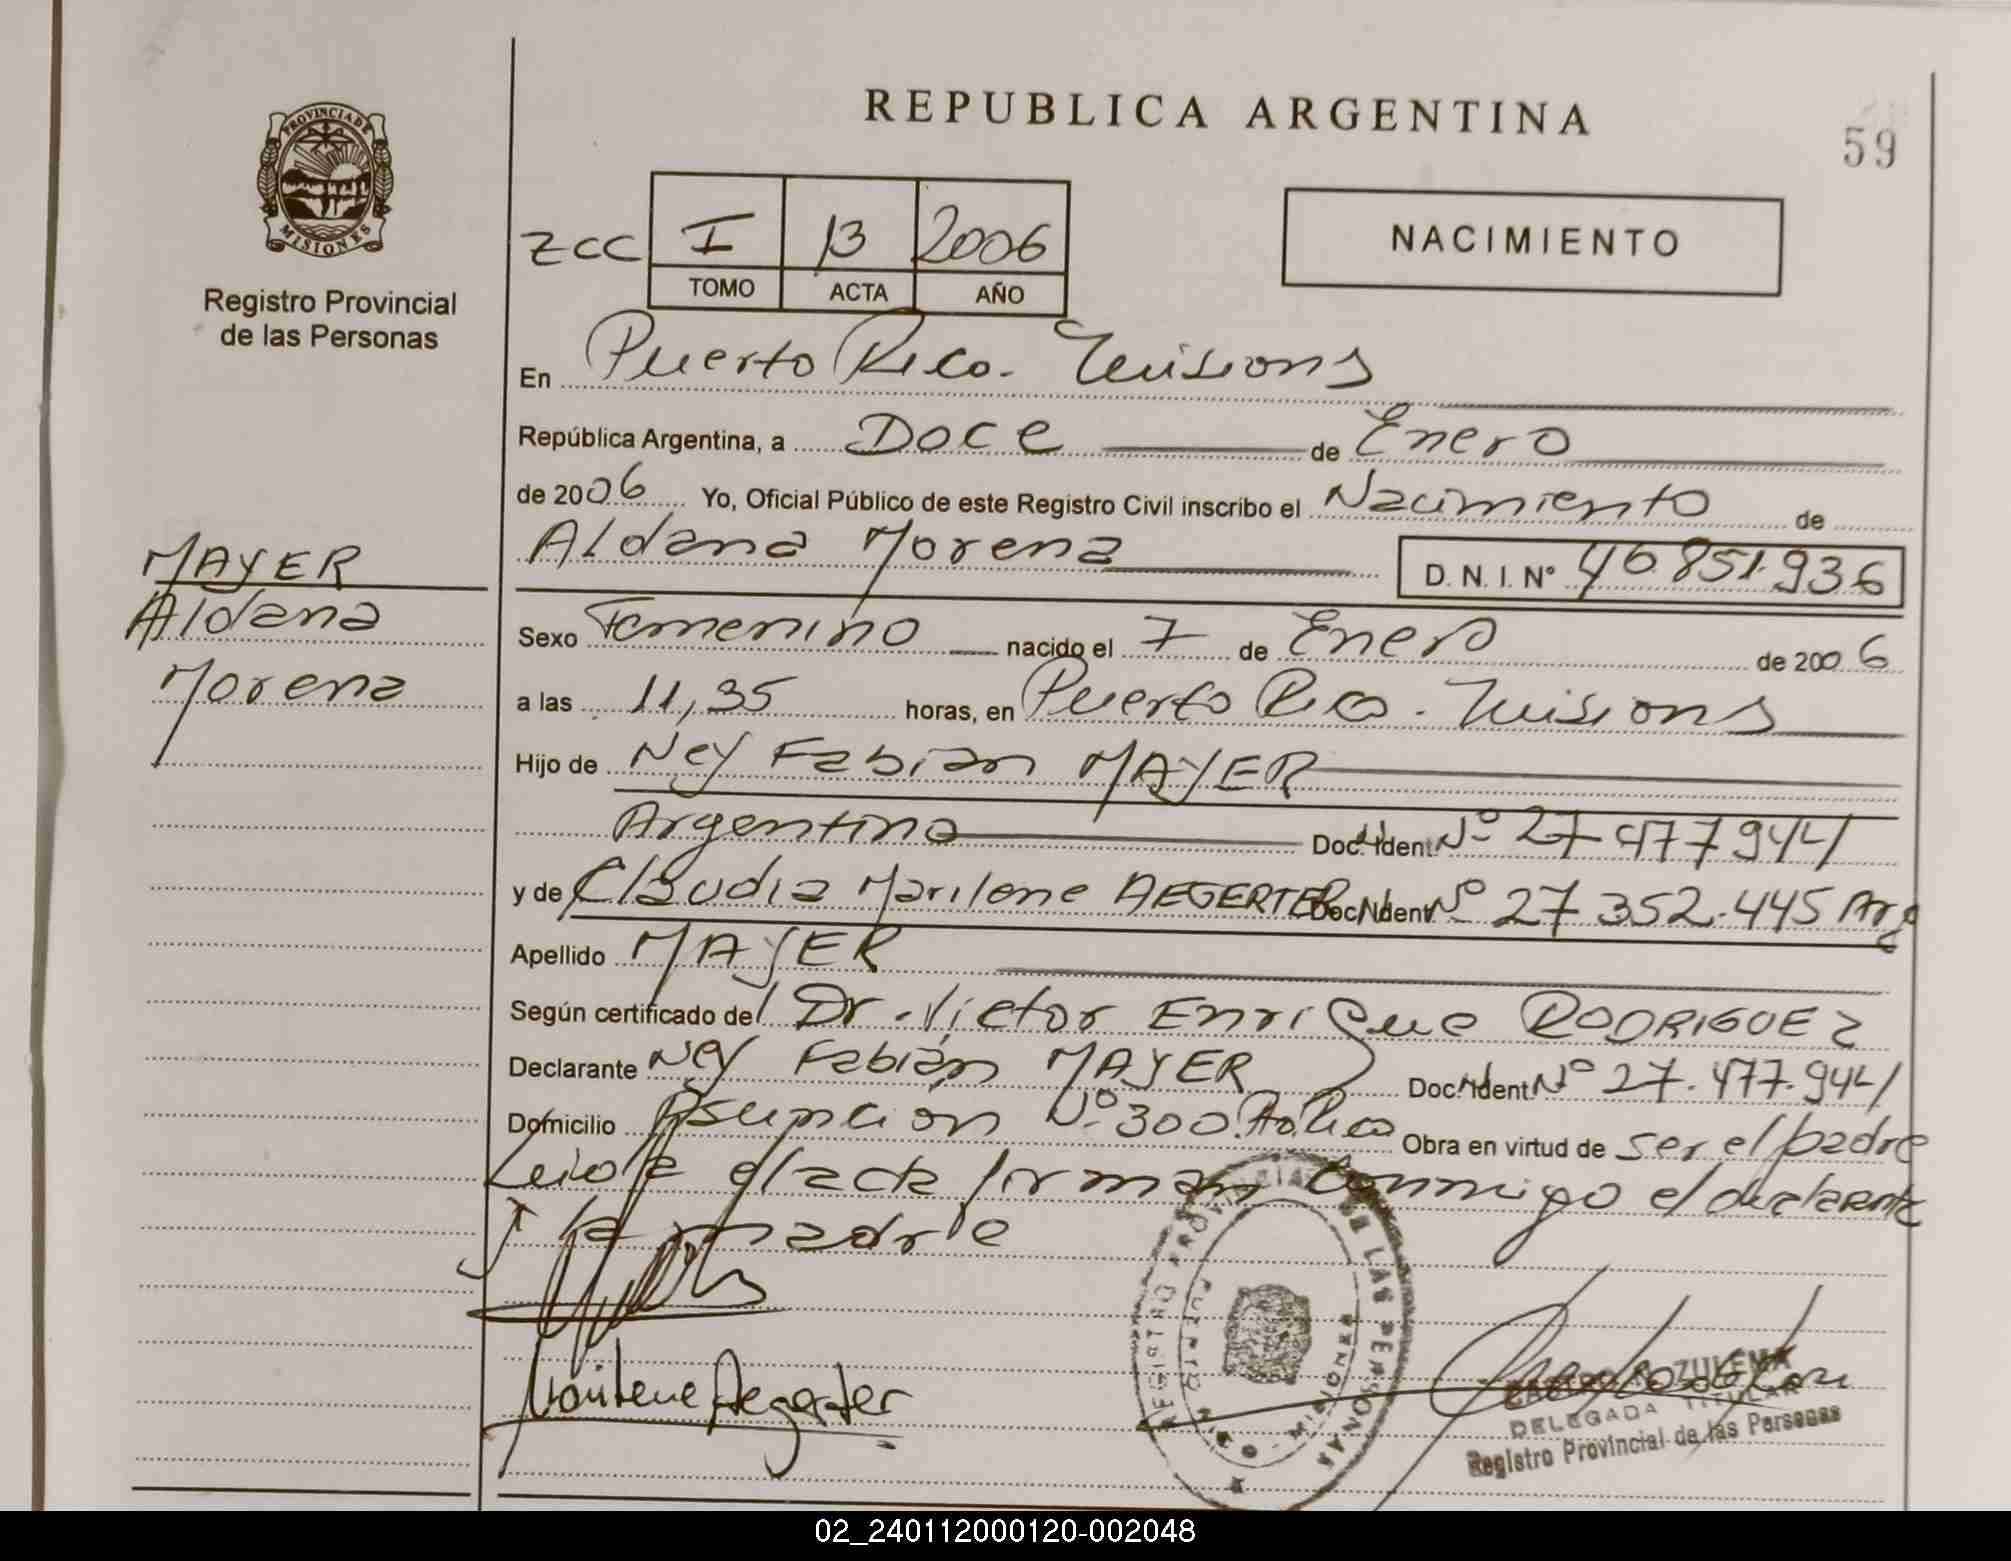 REPUBLICA ARGENTINA
59
PROVINCIA DE MISIONES
Registro Provincial
de las Personas
ZCC I 13 2006
TOMO ACTA AÑO
NACIMIENTO
En Puerto Rico. Misiones
República Argentina, a Doce de Enero
de 2006 Yo, Oficial Público de este Registro Civil inscribo el Nacimiento de
Aldana Morena D. N. I. N° 46.851.936
MAYER
Aldana
Morena
Sexo Femenino nacido el 7 de Enero de 2006
a las 11,35 horas, en Puerto Rico. Misiones
Hijo de Ney Fabián MAYER
Argentino Doc. Ident. N° 27.477.944
y de Claudia Marilene AEGERTER Doc. Ident. N° 27.352.445 Arg
Apellido MAYER
Según certificado del Dr. Victor Enrique RODRIGUEZ
Declarante Ney Fabián MAYER Doc. Ident. N° 27.477.944
Domicilio Asunción N° 300 Pto. Rico Obra en virtud de ser el padre
Leida el acta firman conmigo el declarante
y la madre
Marilene Aegerter
REGISTRO PROVINCIAL DE LAS PERSONAS
PUERTO RICO - MISIONES
ZULEMA
DELEGADA TITULAR
Registro Provincial de las Personas
02_240112000120-002048